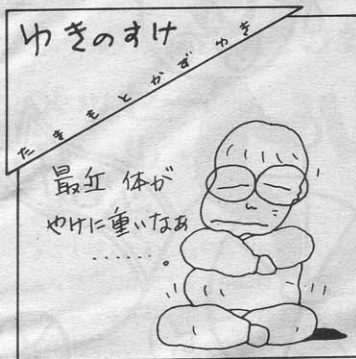 ゆきのすけ
たきもとかずゆき
最近 体が
やけに重いなあ
……。